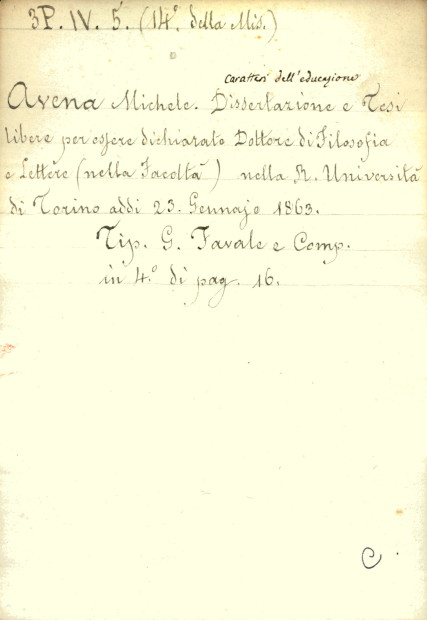 3P. IV. 5. (14.° della Mis.)
Caratteri dell'educazione
Avena Michele. Dissertazione e Tesi
libere per essere dichiarato Dottore di Filosofia
e Lettere (nella Facoltà) nella R. Università
di Torino addì 23. Gennajo 1863.
Tip. G. Favale e Comp.
in 4.° di pag. 16.
C